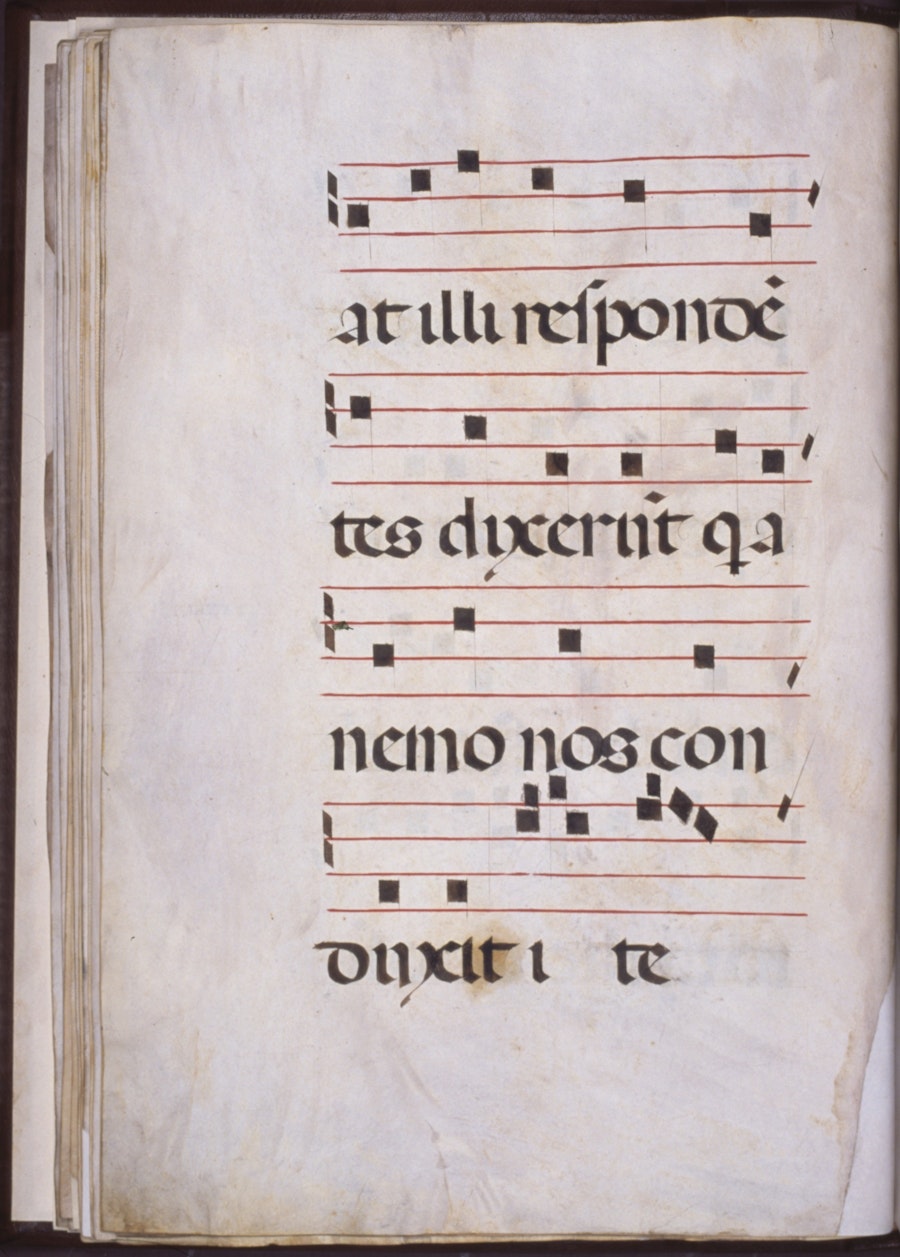 at illi respondē
tes dixerūt qa
nemo nos con
duxit i te